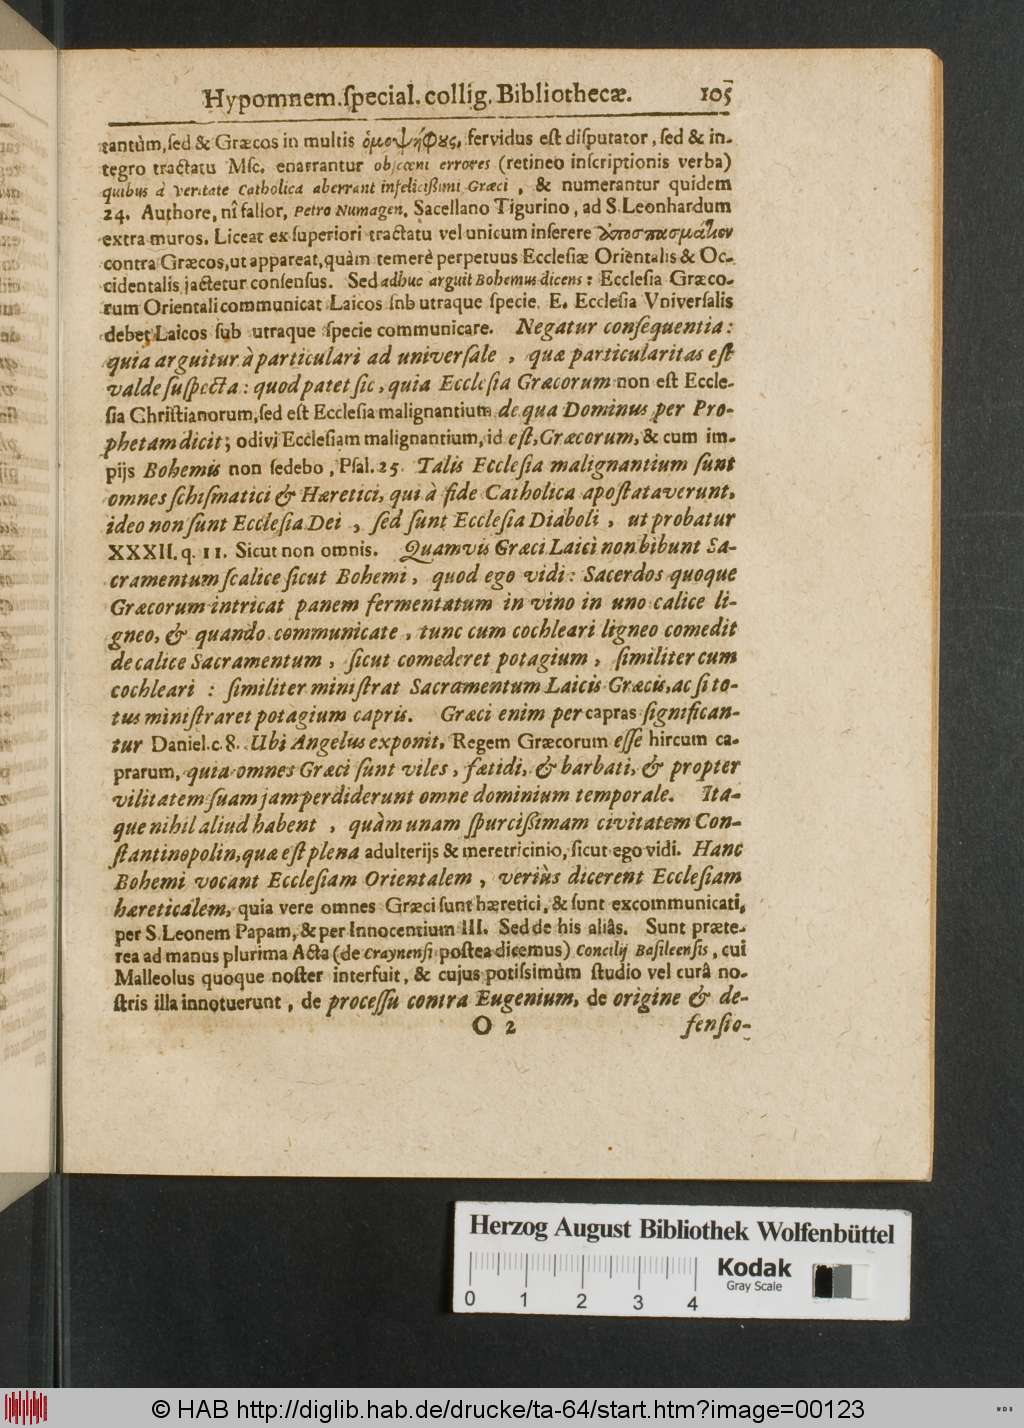 Hypomnem. ſpecial. collig. Bibliothecæ. 105
tantùm, ſed & Græcos in multis ὁμοψήφȣς, fervidus eſt diſputator, ſed & in-
tegro tractatu Mſc. enarrantur obſcœni errores (retineo inſcriptionis verba)
quibus à veritate Catholica aberrant infeliciſſimi Græci, & numerantur quidem
24. Authore, nî fallor, Petro Numagen, Sacellano Tigurino, ad S. Leonhardum
extra muros. Liceat ex ſuperiori tractatu vel unicum inſerere ἀποσπασμάτιον
contra Græcos, ut appareat, quàm temerè perpetuus Eccleſiæ Orientalis & Oc-
cidentalis jactetur conſenſus. Sed adhuc arguit Bohemus dicens: Eccleſia Græco-
rum Orientali communicat Laicos ſnb utraque ſpecie. E. Eccleſia Vniverſalis
debet Laicos ſub utraque ſpecie communicare. Negatur conſequentia:
quia arguitur à particulari ad univerſale, quæ particularitas eſt
valde ſuſpecta: quod patet ſic, quia Eccleſia Græcorum non eſt Eccle-
ſia Chriſtianorum, ſed eſt Eccleſia malignantium de qua Dominus per Pro-
phetam dicit; odivi Eccleſiam malignantium, id eſt, Græcorum, & cum im-
pijs Bohemis non ſedebo, Pſal. 25. Talis Eccleſia malignantium ſunt
omnes ſchiſmatici & Hæretici, qui à fide Catholica apoſtataverunt,
ideo non ſunt Eccleſia Dei, ſed ſunt Eccleſia Diaboli, ut probatur
XXXII. q. 11. Sicut non omnis. Quamvis Græci Laici non bibunt Sa-
cramentum ſcalice ſicut Bohemi, quod ego vidi: Sacerdos quoque
Græcorum intricat panem fermentatum in vino in uno calice li-
gneo, & quando communicate, tunc cum cochleari ligneo comedit
de calice Sacramentum, ſicut comederet potagium, ſimiliter cum
cochleari: ſimiliter miniſtrat Sacramentum Laicis Græcis, ac ſi to-
tus miniſtraret potagium capris. Græci enim per capras ſignifican-
tur Daniel. c. 8. Ubi Angelus exponit, Regem Græcorum eſſe hircum ca-
prarum, quia omnes Græci ſunt viles, fætidi, & barbati, & propter
vilitatem ſuam jam perdiderunt omne dominium temporale. Ita-
que nihil aliud habent, quàm unam ſpurciſſimam civitatem Con-
ſtantinopolin, quæ eſt plena adulterijs & meretricinio, ſicut ego vidi. Hanc
Bohemi vocant Eccleſiam Orientalem, veriùs dicerent Eccleſiam
hæreticalem, quia vere omnes Græci ſunt hæretici, & ſunt excommunicati,
per S. Leonem Papam, & per Innocentium III. Sed de his aliâs. Sunt præte-
rea ad manus plurima Acta (de Craynenſi poſtea dicemus) Concilij Baſileenſis, cui
Malleolus quoque noſter interfuit, & cujus potiſsimùm ſtudio vel curâ no-
ſtris illa innotuerunt, de proceſſu contra Eugenium, de origine & de-
O 2 fenſio-
Herzog August Bibliothek Wolfenbüttel
0 1 2 3 4
Kodak
Gray Scale
© HAB http://diglib.hab.de/drucke/ta-64/start.htm?image=00123